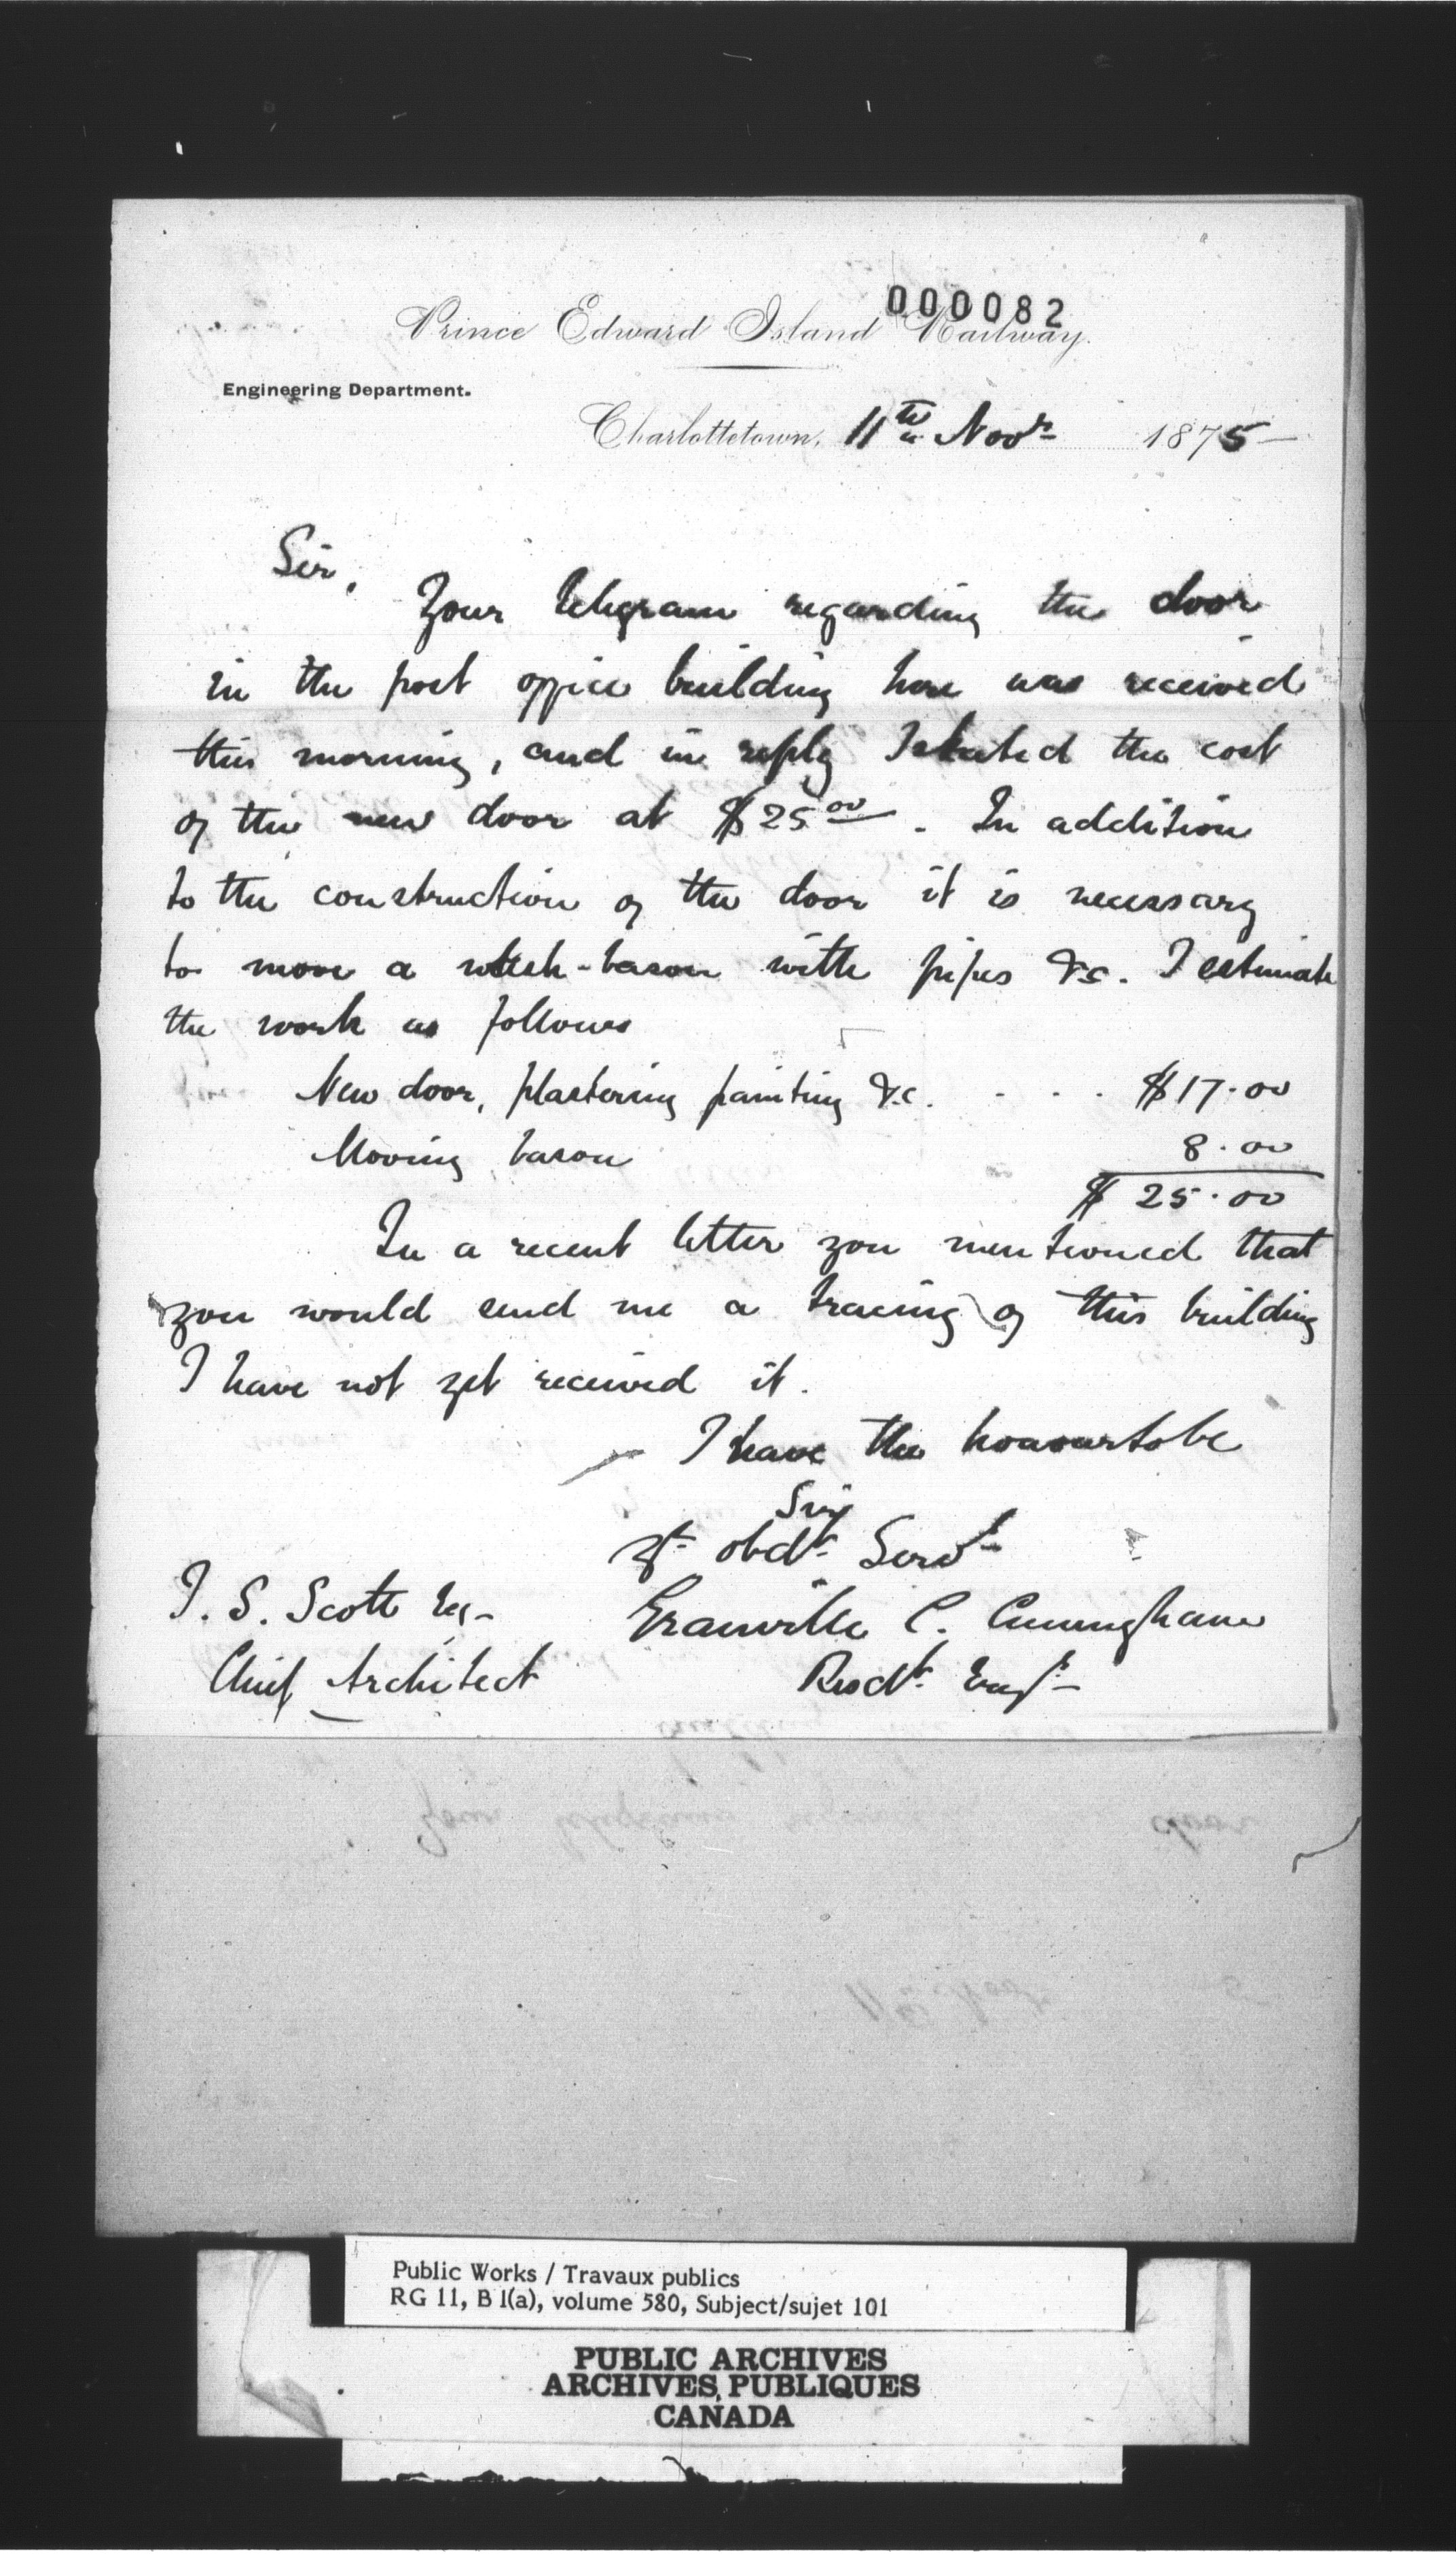 000082
Prince Edward Island Railway.
Engineering Department.
Charlottetown, 11th Novr 1875
Sir,
Your telegram regarding the door
in the post office building here was received
this morning, and in reply I stated the cost
of the new door at $25.00. In addition
to the construction of the door it is necessary
to move a wash-bason with pipes &c. I estimate
the work as follows
New door, plastering painting &c. - - . $17.00
Moving bason 8.00
$ 25.00
In a recent letter you mentioned that
you would send me a tracing of this building
I have not yet received it.
I have the honour to be
Sir
Yr obdt Servt
T. S. Scott Esq Granville C. Cuningham
Chief Architect Resdt Engr
Public Works / Travaux publics
RG 11, B 1(a), volume 580, Subject/sujet 101
PUBLIC ARCHIVES
ARCHIVES PUBLIQUES
CANADA